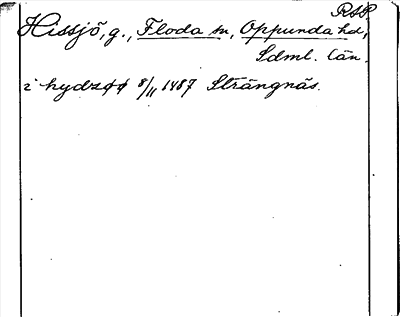 RSP.
Hissjö, g., Floda sn, Oppunda hd,
Sdml. län.
i hydzøø 8/11 1487 Strängnäs.